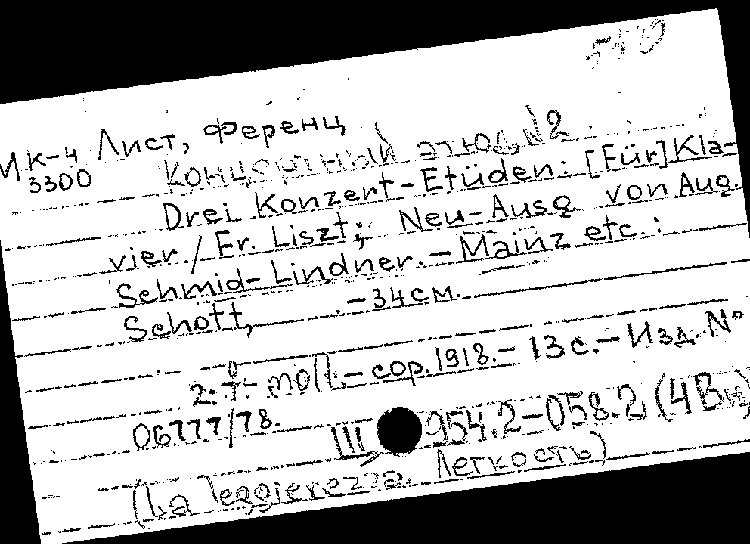 540
МК-4 Лист, Ференц
3300 Концертный этюд, №2
Drei Konzert-Etüden: [Für] Kla-
vier. / Fr. Liszt; Neu-Ausg von Aug.
Schmid-Lindner. - Mainz etc.:
Schott, - 34 см.
2. moll. - cop. 1918. - 13 с. - Изд. №
06777/78.
III 954.2-058.2 (4Вн)
(La leggierezza. Легкость)